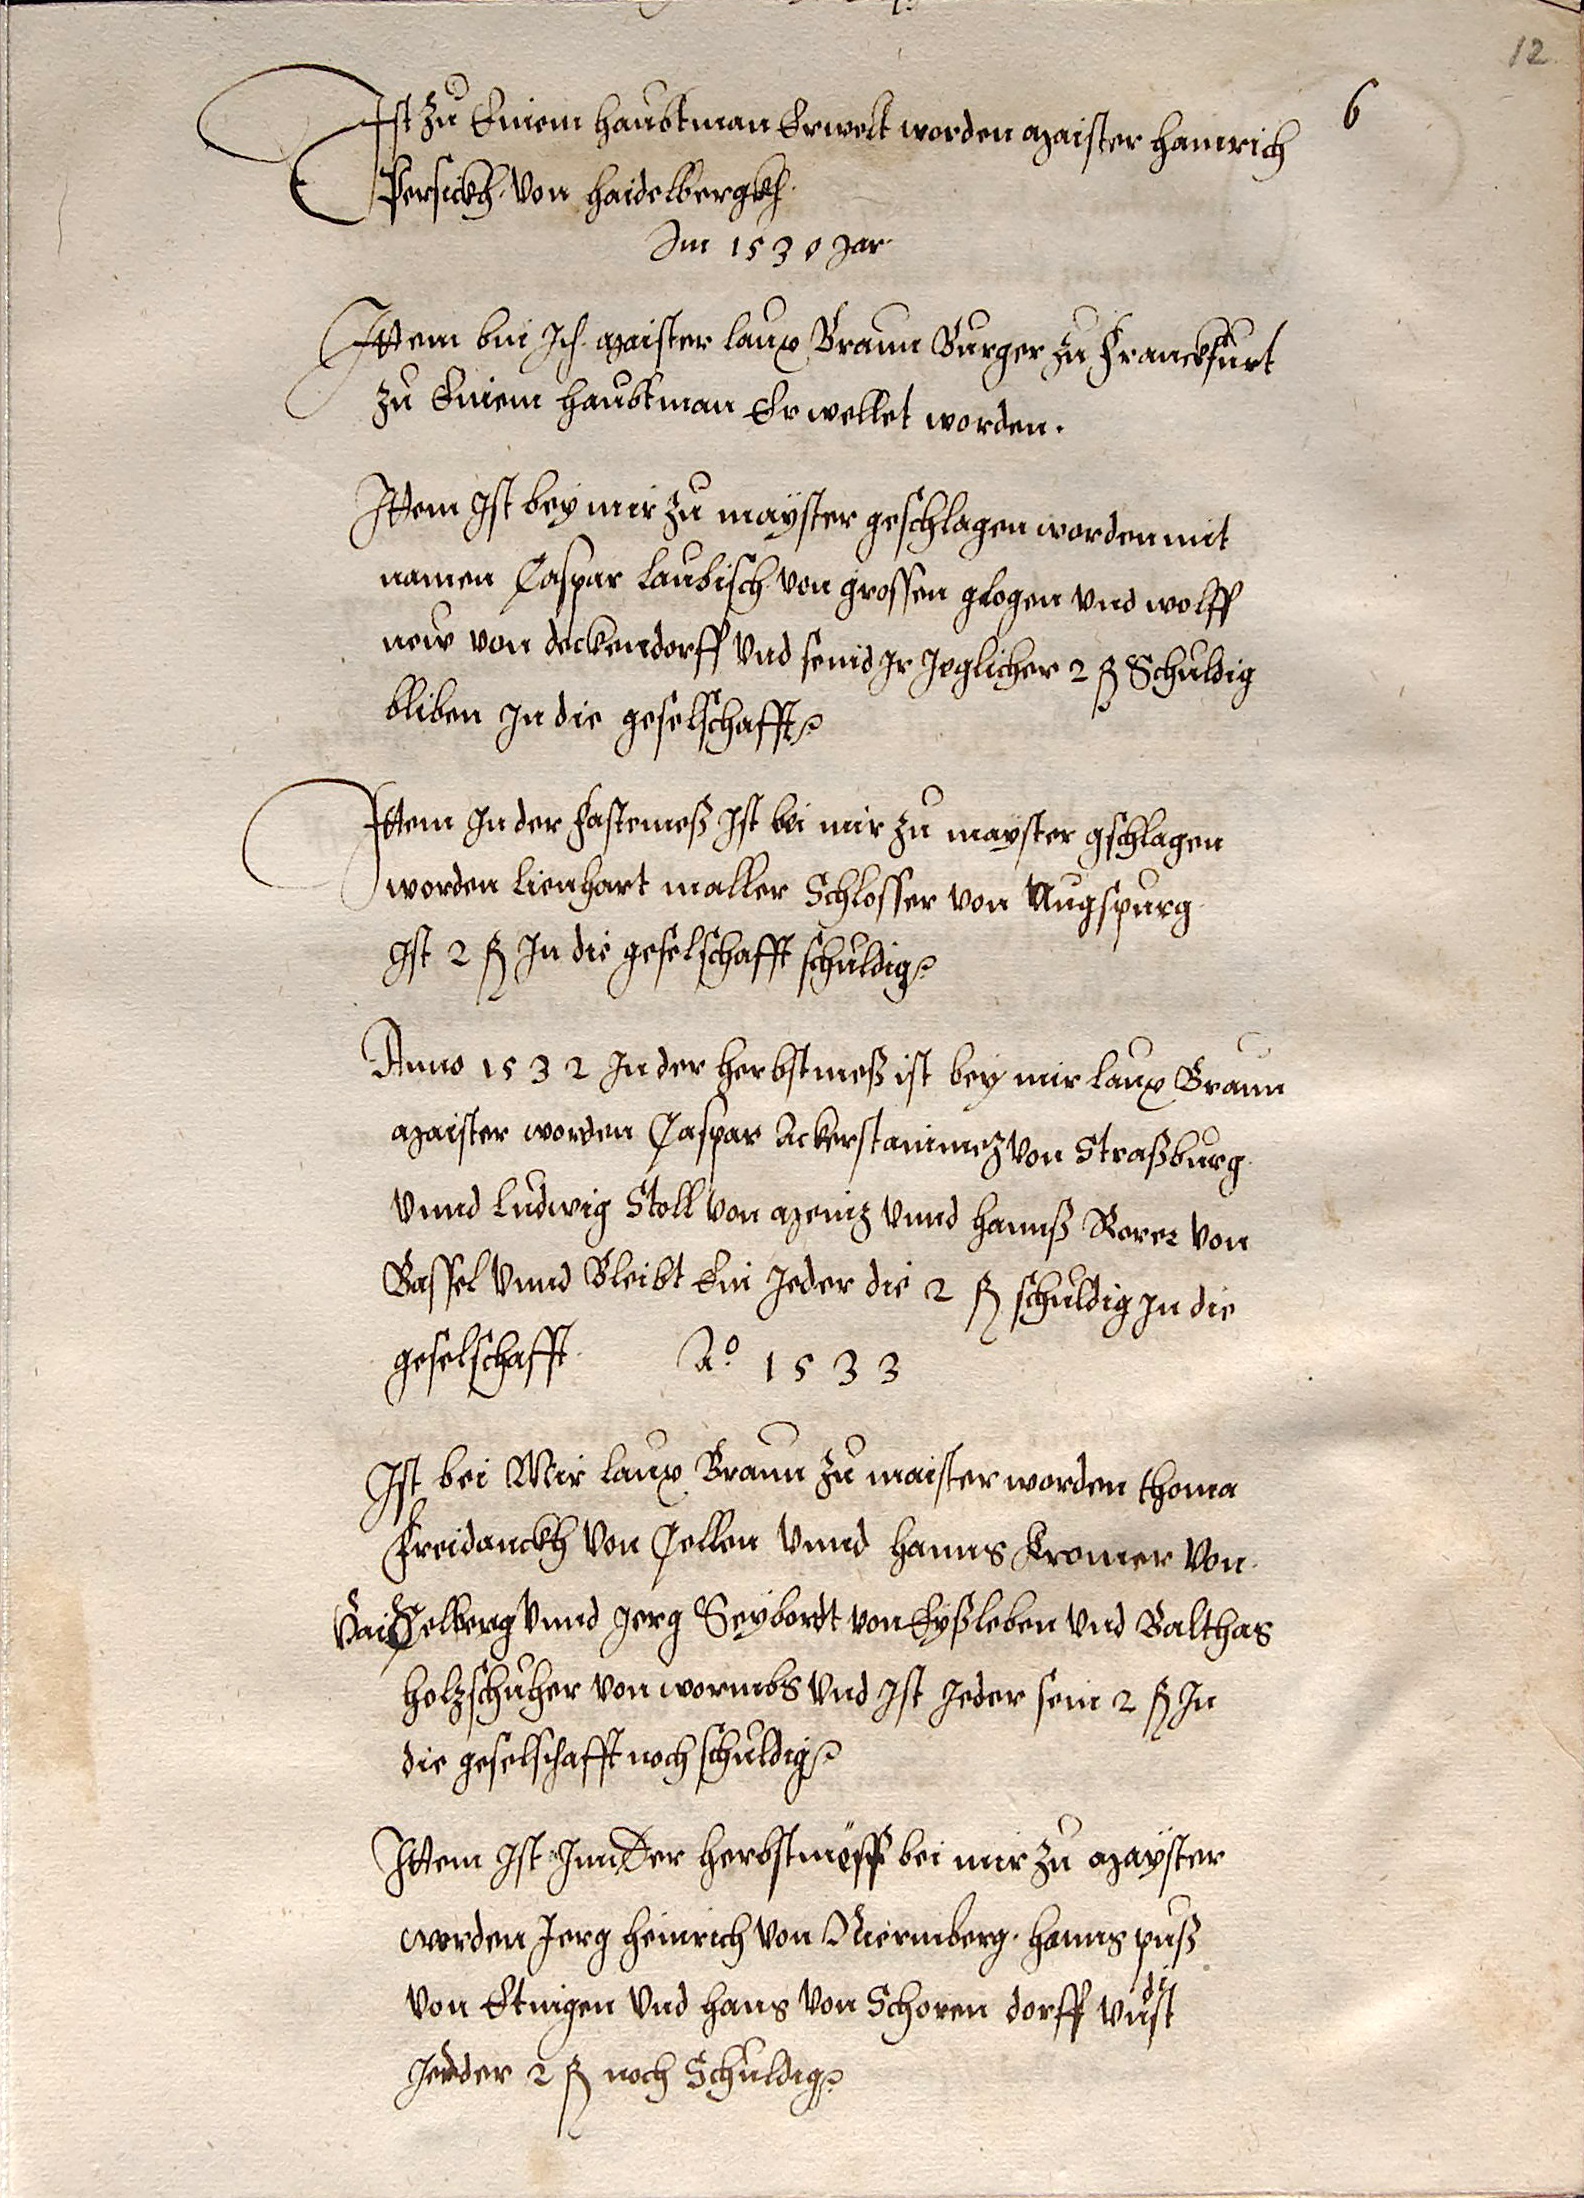 12
6
Ist zu Einem haubtman Erwelt worden Maister hainrich
Persickh von haidelbergkh
Im 1530 Jar
Ittem bin Ich Maister laux Braun Burger zu Franckfurt
zu Einem haubtman Erwellet worden.
Ittem Ist bey mir zu mayster geschlagen worden mit
namen Caspar laubisch von grossen glogen vnd wolff
new von deckendorff vnd seind Ir Jeglicher 2 ß Schuldig
bliben In die geselschafft
Ittem In der Fastemeß Ist bei mir zu mayster gschlagen
worden lienhart maller Schlosser von Augspurg
Ist 2 ß In die geselschafft schuldig
Anno 1532 In der herbstmeß ist bey mir laux Braun
Maister worden Caspar Ackerstainmez von Straßburg
vnnd ludwig Stoll von Meinz vnnd hannß Rorer von
Bassel vnnd Bleibt Ein Jeder die 2 ß schuldig In die
geselschafft Ao 1533
Ist bei Mir laux Braun zu maister worden thoma
Freidanckh von Cellen vnnd hanns Kromer von
Haidelberg vnnd Jerg Seybordt von Eyßleben vnd Balthas
holzschuher von wormbs vnd Ist Jeder sein 2 ß In
die geselschafft noch schuldig
Ittem Ist Inn Der herbstmëss bei mir zu Mayster
worden Jerg heinrich von Niermberg. hanns puß
von Etnigen vnd hans von Schoren dorff vnd ist
Jedder 2 ß noch Schuldig